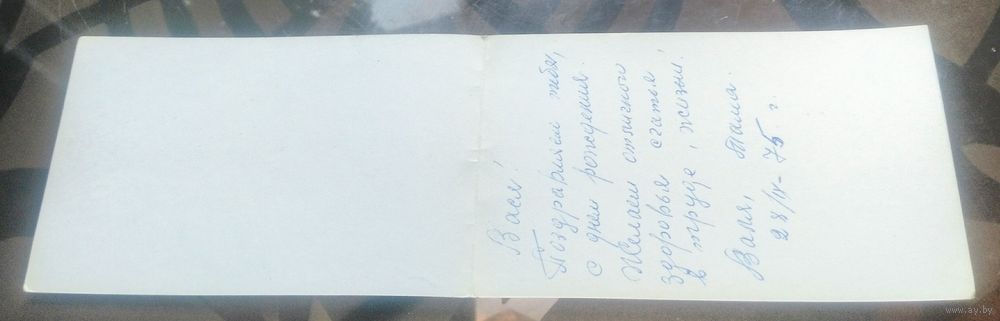 Вася!
Поздравляем тебя,
с днем рождения.
Желаем отличного
здоровья счастья
в труде, жизни.
Ваня, Тома.
28/IV-75 г.
www.ay.by